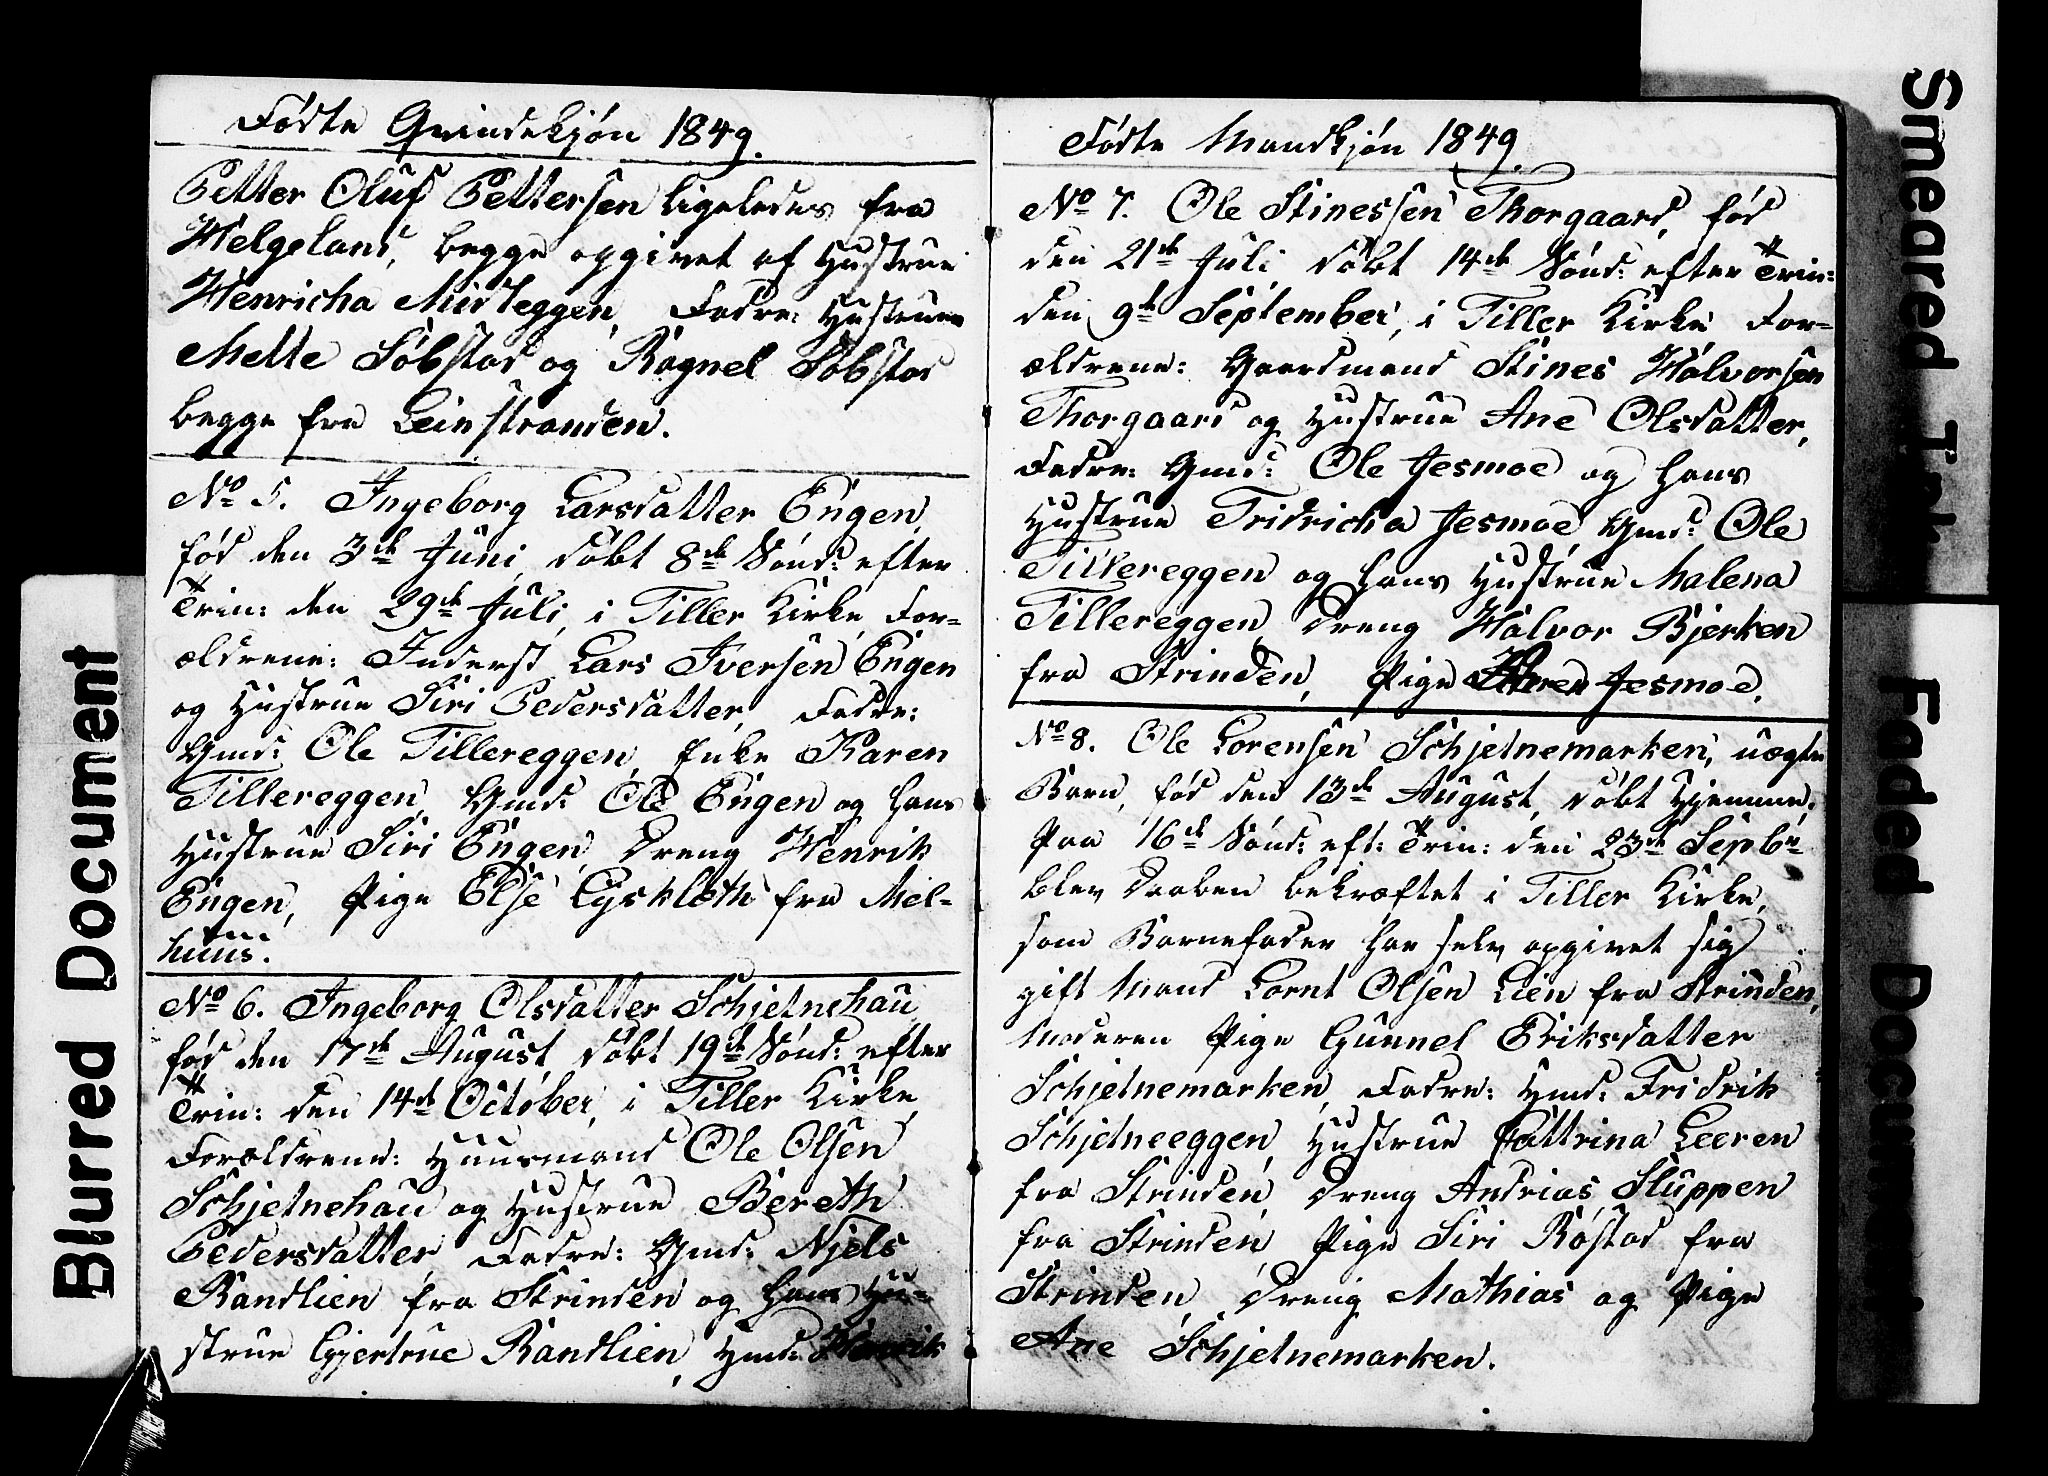 Fødte Qvindekjøn 1849.
Petter Oluf Pettersen ligeledes fra
Helgeland, begge opgivet af Hustrue
Henricha Midteggen, Fadre: Hustruen
Mette Søbstad og Ragnel Søbstad
begge fra Leinstranden.
No 5. Ingeborg Larsdatter Engen,
fød den 3de Juni, døbt 8de Sønd: efter
Trin: den 29de Juli, i Tiller Kirke, For-
ældrene: Inderst Lars Iversen Engen
og Hustrue Siri Pedersdatter, Fadre:
Gmd: Ole Tillereggen, Enke Karen
Tillereggen, Gmd: Ole Engen og hans
Hustrue Siri Engen, Dreng Henrik
Engen, Pige Else Lysklæth fra Mel-
huus.
No 6. Ingeborg Olsdatter Schjetnehau,
fød den 17de August, døbt 19de Sønd: efter
Trin: den 14de October, i Tiller Kirke,
Forældrene: Huusmand Ole Olsen
Schjetnehau og Hustrue Bereth
Pedersdatter, Fadre: Gmd: Njels
Randlien fra Strinden og hans Hu-
strue Gjertrue Randlien, Hmd: Henrik
Fødte Mandkjøn 1849.
No 7. Ole Stinessen Thorgaard, fød
den 21de Juli, døbt 14de Sønd: efter Trin:
den 9de September, i Tiller Kirke For-
ældrene: Gaardmand Stines Halvorsen
Thorgaard og Hustrue Ane Olsdatter,
Fadre: Gmd: Ole Jesmoe og hans
Hustrue Fridricha Jesmoe, Gmd: Ole
Tillereggen og hans Hustrue Malena
Tillereggen, Dreng Halvor Bjerken
fra Strinden, Pige Jesmoe.
No 8. Ole Lorensen Schjetnemarken, uægte
Barn, fød den 13de August, døbt Hjemme.
Paa 16de Sønd: eft: Trin: den 23de Septbr
blev Daaben bekræftet i Tiller Kirke,
som Barnefader har selv opgivet sig
gift Mand Lornt Olsen Lien fra Strinden,
Moderen Pige Gunnel Eriksdatter
Schjetnemarken, Fadre: Hmd: Fridrik
Schjetneeggen, Hustrue Cattrina Leeren
fra Strinden, Dreng Andrias Sluppen
fra Strinden, Pige Siri Røstad fra
Strinden, Dreng Mathias og Pige
Ane Schjetnemarken.
Blurred Document
Smeared
Faded Document